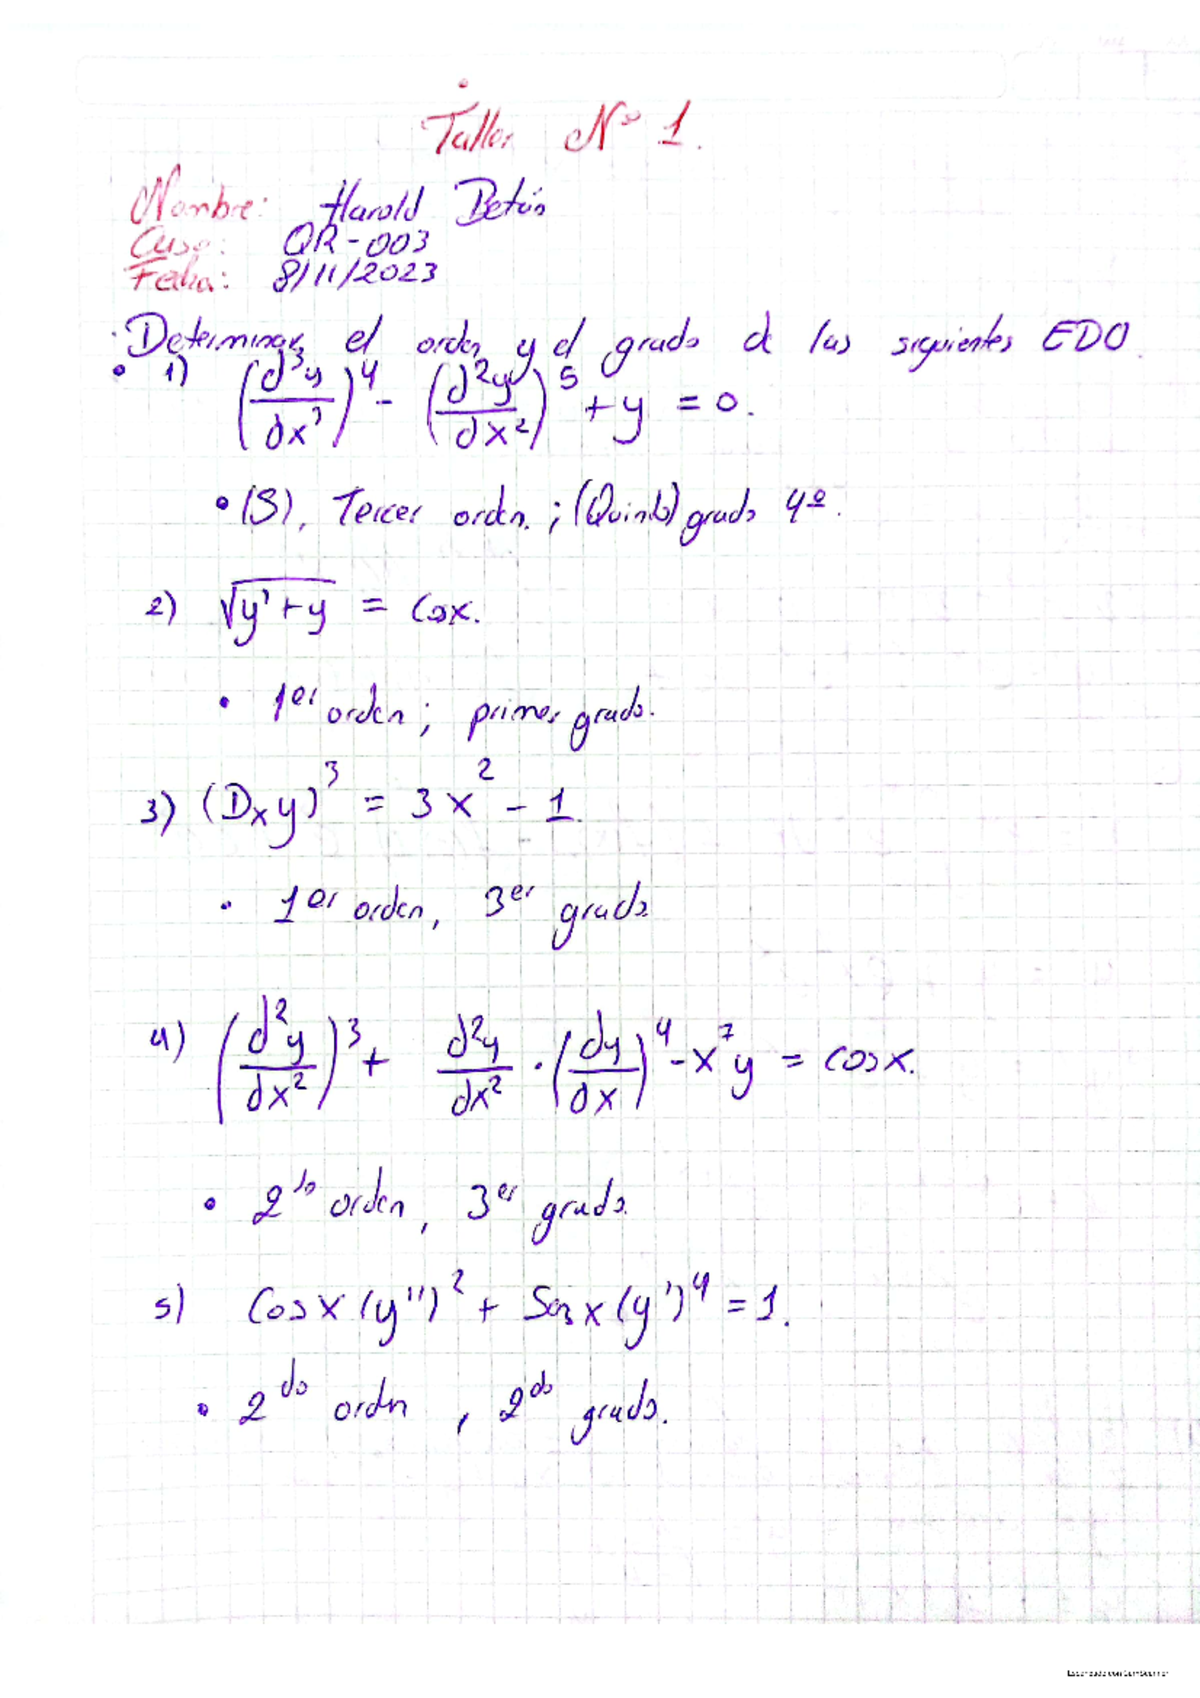 Taller Nº 1.
Nombre: Harold Betún
Curso: QR-003
Fecha: 8/11/2023
· Determinar el orden y el grado de las siguientes EDO.
• 1) (d³y/dx³)⁴ - (d²y/dx²)⁵ + y = 0.
• (S), Tercer orden. ; (Quinto) grado 4º.
2) √(y' + y) = Cosx.
• 1er orden; primer grado.
3) (Dₓy)³ = 3x² - 1
• 1er orden, 3er grado
4) (d²y/dx²)³ + d²y/dx² · (dy/dx)⁴ - x⁷y = cosx.
• 2do orden, 3er grado.
5) Cosx(y'')² + Senx(y')⁴ = 1.
• 2do orden, 2do grado.
Escaneado con CamScanner